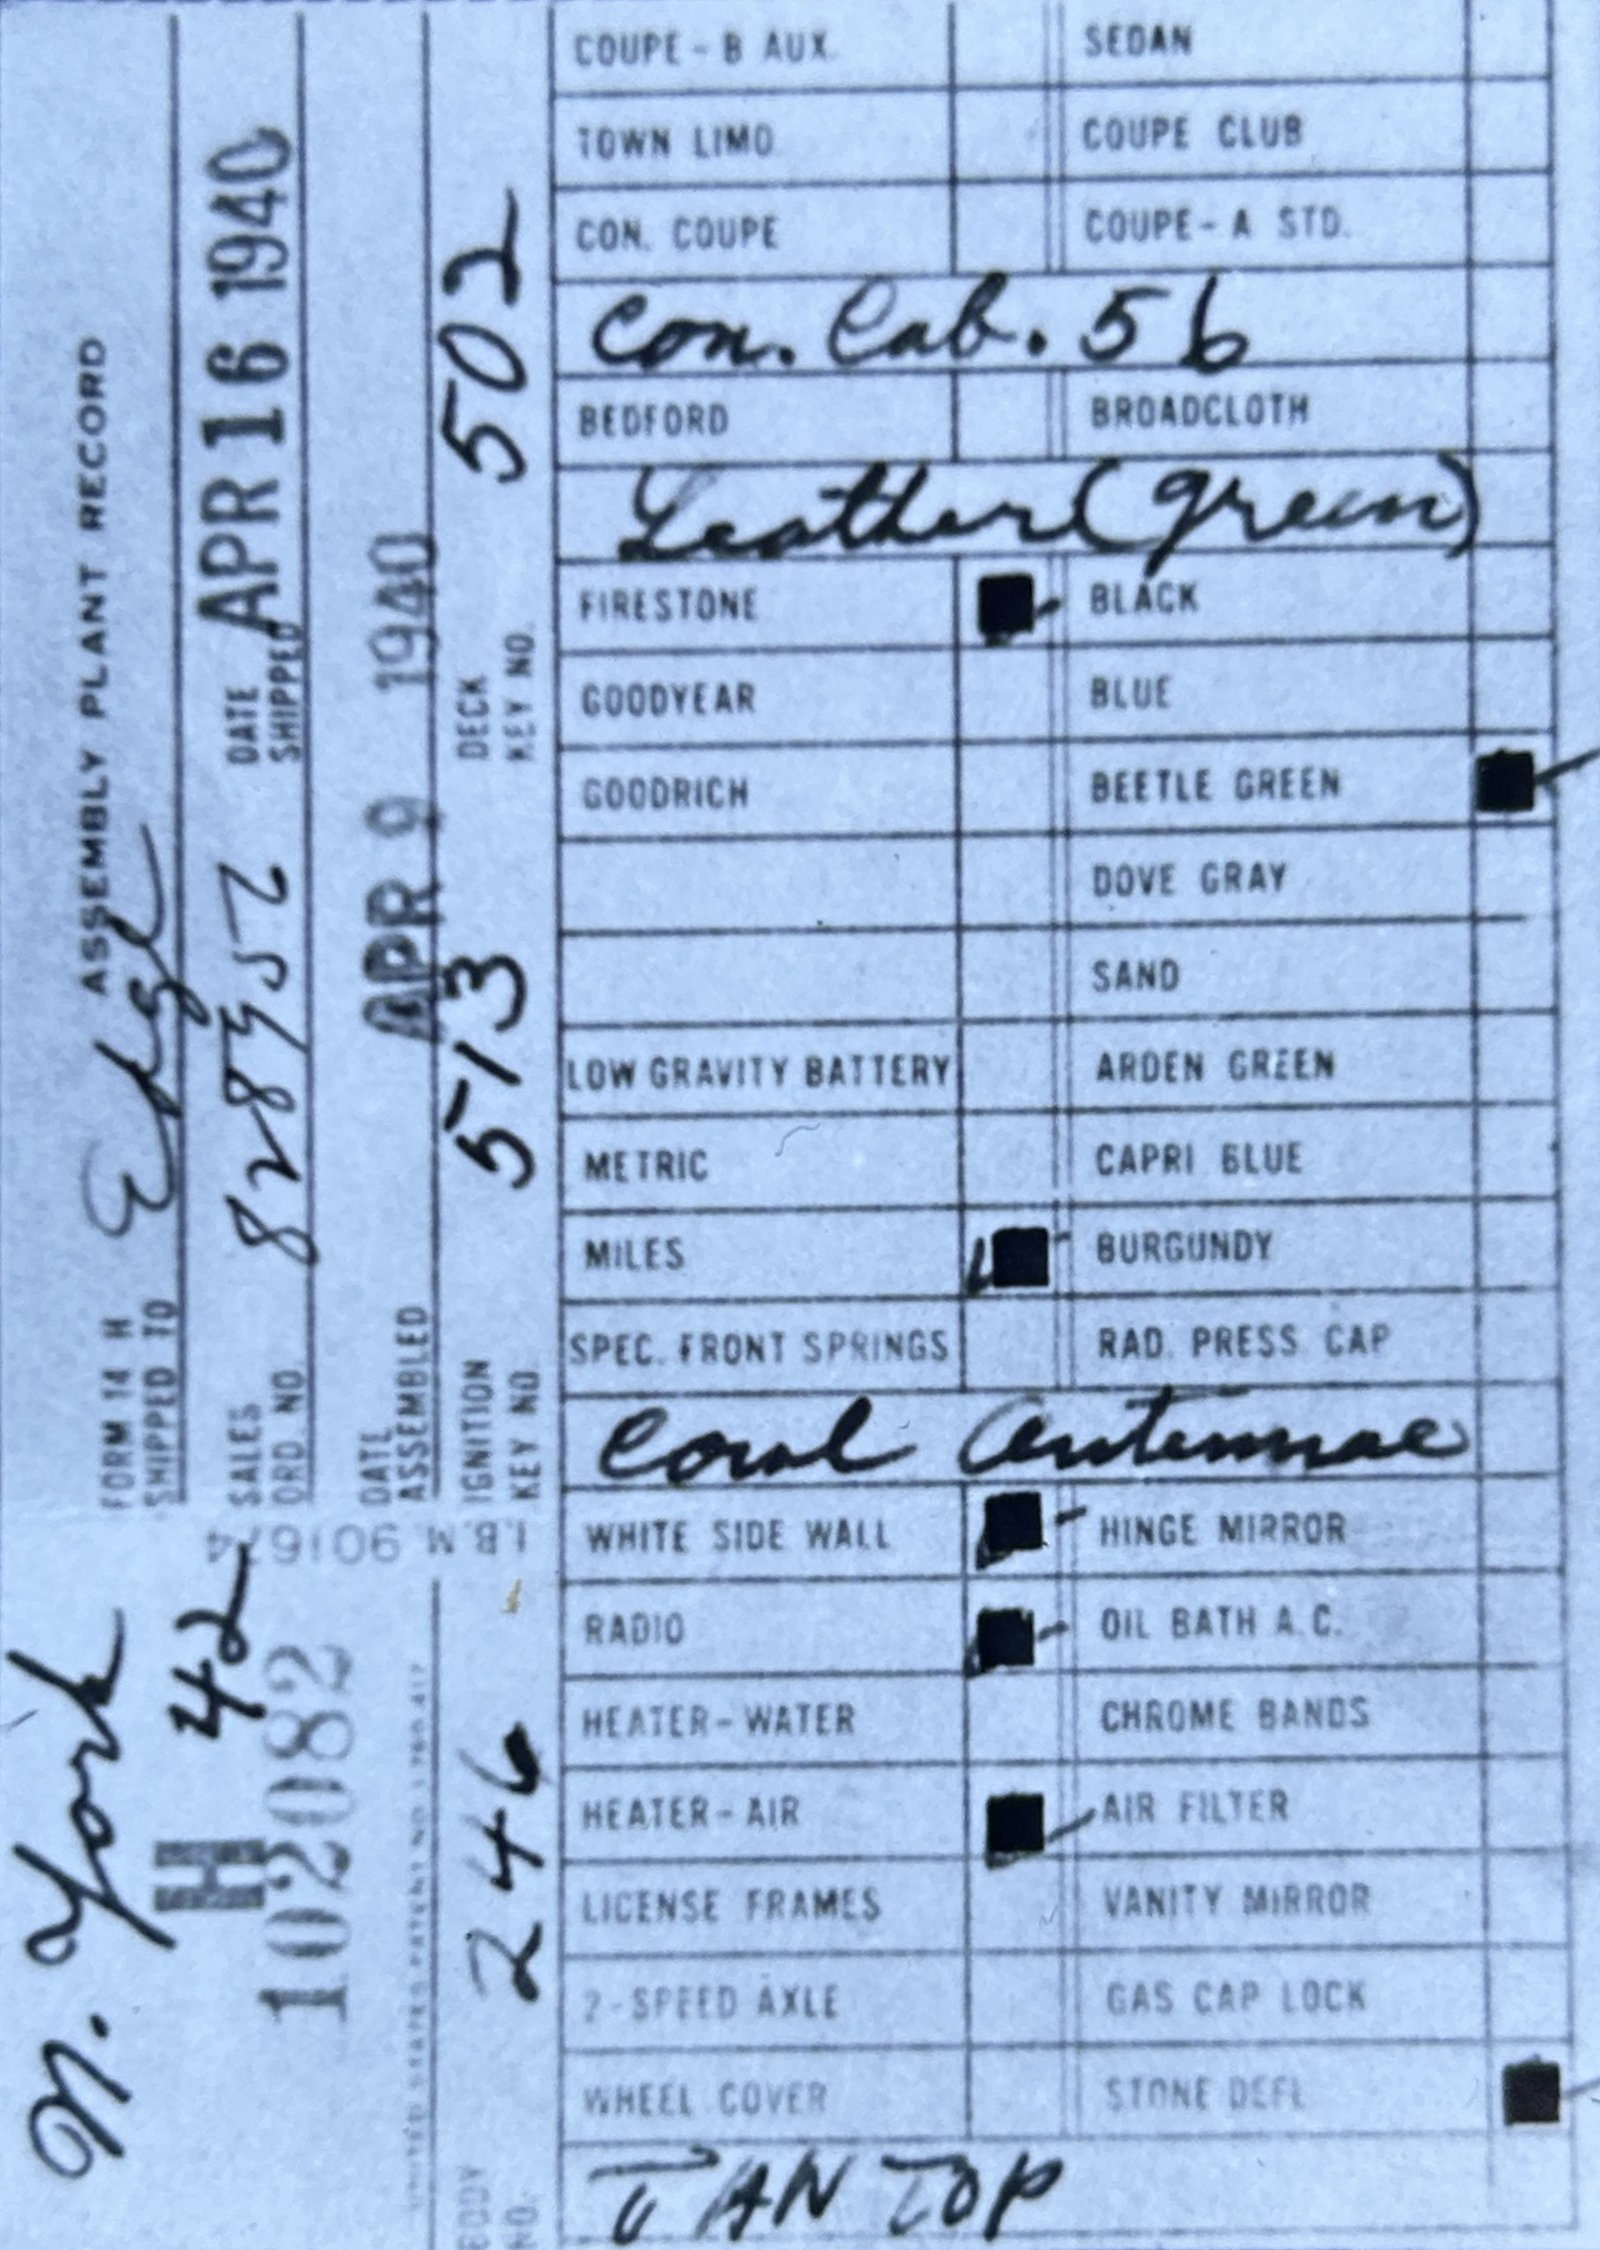 FORM 14 H ASSEMBLY PLANT RECORD
SHIPPED TO
N. York
SALES ORD. NO.
DATE SHIPPED APR 16 1940
42
H
102082
DATE ASSEMBLED APR 9 1940
IGNITION KEY NO. 513
DECK KEY NO. 502
BODY NO. 246
I.B.M. 901674
COUPE - B AUX. SEDAN
TOWN LIMO. COUPE CLUB
CON. COUPE COUPE - A STD.
Con. Cab. 56
BEDFORD BROADCLOTH
Leather (green)
FIRESTONE BLACK
GOODYEAR BLUE
GOODRICH BEETLE GREEN
DOVE GRAY
SAND
LOW GRAVITY BATTERY ARDEN GREEN
METRIC CAPRI BLUE
MILES BURGUNDY
SPEC. FRONT SPRINGS RAD. PRESS CAP
Cowl Antennae
WHITE SIDE WALL HINGE MIRROR
RADIO OIL BATH A.C.
HEATER - WATER CHROME BANDS
HEATER - AIR AIR FILTER
LICENSE FRAMES VANITY MIRROR
2-SPEED AXLE GAS CAP LOCK
WHEEL COVER STONE DEFL
TAN TOP